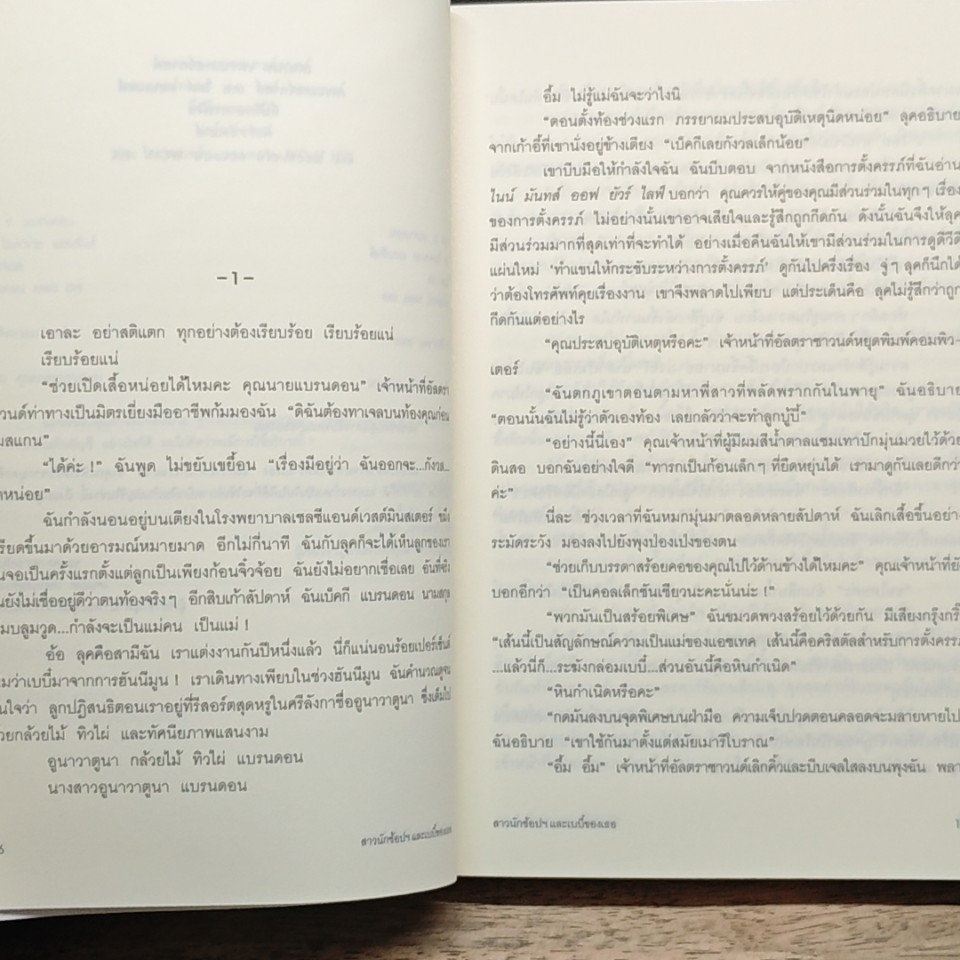 -1-
เอาละ อย่าสติแตก ทุกอย่างต้องเรียบร้อย เรียบร้อยแน่
เรียบร้อยแน่
“ช่วยเปิดเสื้อหน่อยได้ไหมคะ คุณนายแบรนดอน” เจ้าหน้าที่อัลตรา
วนด์ท่าทางเป็นมิตรเยี่ยงมืออาชีพก้มมองฉัน “ดิฉันต้องทาเจลบนท้องคุณก่อน
มสแกน”
“ได้ค่ะ!” ฉันพูด ไม่ขยับเขยื้อน “เรื่องมีอยู่ว่า ฉันออกจะ...กังวล...
กหน่อย”
ฉันกำลังนอนอยู่บนเตียงในโรงพยาบาลเชลซีแอนด์เวสต์มินสเตอร์
รียดขึ้นมาด้วยอารมณ์หมายมาด อีกไม่กี่นาที ฉันกับลุคก็จะได้เห็นลูกของเรา
นจอเป็นครั้งแรกตั้งแต่ลูกเป็นเพียงก้อนจิ๋วจ้อย ฉันยังไม่อยากเชื่อเลย อันที่จริง
นยังไม่เชื่ออยู่ดีว่าตนท้องจริงๆ อีกสิบเก้าสัปดาห์ ฉันเบ็คกี แบรนดอน นามสกุล
มบลูมวูด...กำลังจะเป็นแม่คน เป็นแม่!
อ้อ ลุคคือสามีฉัน เราแต่งงานกันปีหนึ่งแล้ว นี่ก็แน่นอนร้อยเปอร์เซ็นต์
มว่าเบบี๋มาจากการฮันนีมูน! เราเดินทางเพียบในช่วงฮันนีมูน ฉันคำนวณดูจน
นใจว่า ลูกปฏิสนธิตอนเราอยู่ที่รีสอร์ตสุดหรูในศรีลังกาชื่ออูนาวาตูนา ซึ่งเต็มไป
วยกล้วยไม้ ทิวไผ่ และทัศนียภาพแสนงาม
อูนาวาตูนา กล้วยไม้ ทิวไผ่ แบรนดอน
นางสาวอูนาวาตูนา แบรนดอน
สาวนักช้อปฯ และเบบี๋ของเธอ
6
อึ้ม ไม่รู้แม่ฉันจะว่าไงนิ
“ตอนตั้งท้องช่วงแรก ภรรยาผมประสบอุบัติเหตุนิดหน่อย” ลุคอธิบาย
จากเก้าอี้ที่เขานั่งอยู่ข้างเตียง “เบ็คกีเลยกังวลเล็กน้อย”
เขาบีบมือให้กำลังใจฉัน ฉันบีบตอบ จากหนังสือการตั้งครรภ์ที่ฉันอ่าน
ไนน์ มันทส์ ออฟ ยัวร์ ไลฟ์ บอกว่า คุณควรให้คู่ของคุณมีส่วนร่วมในทุกๆ เรื่อง
ของการตั้งครรภ์ ไม่อย่างนั้นเขาอาจเสียใจและรู้สึกถูกกีดกัน ดังนั้นฉันจึงให้ลุค
มีส่วนร่วมมากที่สุดเท่าที่จะทำได้ อย่างเมื่อคืนฉันให้เขามีส่วนร่วมในการดูดีวีดี
แผ่นใหม่ ‘ทำแขนให้กระชับระหว่างการตั้งครรภ์’ ดูกันไปครึ่งเรื่อง จู่ๆ ลุคก็นึกได้
ว่าต้องโทรศัพท์คุยเรื่องงาน เขาจึงพลาดไปเพียบ แต่ประเด็นคือ ลุคไม่รู้สึกว่าถูก
กีดกันแต่อย่างไร
“คุณประสบอุบัติเหตุหรือคะ” เจ้าหน้าที่อัลตราซาวนด์หยุดพิมพ์คอมพิว-
เตอร์
“ฉันตกภูเขาตอนตามหาพี่สาวที่พลัดพรากกันในพายุ” ฉันอธิบาย
“ตอนนั้นฉันไม่รู้ว่าตัวเองท้อง เลยกลัวว่าจะทำลูกบู้บี้”
“อย่างนี้นี่เอง” คุณเจ้าหน้าที่ผู้มีผมสีน้ำตาลแซมเทาปักมุ่นมวยไว้ด้วย
ดินสอ บอกฉันอย่างใจดี “ทารกเป็นก้อนเล็กๆ ที่ยืดหยุ่นได้ เรามาดูกันเลยดีกว่า
ค่ะ”
นี่ละ ช่วงเวลาที่ฉันหมกมุ่นมาตลอดหลายสัปดาห์ ฉันเลิกเสื้อขึ้นอย่าง
ระมัดระวัง มองลงไปยังพุงป่องเป่งของตน
“ช่วยเก็บบรรดาสร้อยคอของคุณไปไว้ด้านข้างได้ไหมคะ” คุณเจ้าหน้าที่ยัง
บอกอีกว่า “เป็นคอลเล็กชันเชียวนะคะนั่นน่ะ!”
“พวกมันเป็นสร้อยพิเศษ” ฉันขมวดพวงสร้อยไว้ด้วยกัน มีเสียงกรุ๊งกริ๊
“เส้นนี้เป็นสัญลักษณ์ความเป็นแม่ของแอซเทค เส้นนี้คือคริสตัลสำหรับการตั้งครรภ
...แล้วนี่ก็...ระฆังกล่อมเบบี๋...ส่วนอันนี้คือหินกำเนิด”
“หินกำเนิดหรือคะ”
“กดมันลงบนจุดพิเศษบนฝ่ามือ ความเจ็บปวดตอนคลอดจะมลายหายไป
ฉันอธิบาย “เขาใช้กันมาตั้งแต่สมัยเมารีโบราณ”
“อึ้ม อึ้ม” เจ้าหน้าที่อัลตราซาวนด์เลิกคิ้วและบีบเจลใสลงบนพุงฉัน พลา
สาวนักช้อปฯ และเบบี๋ของเธอ